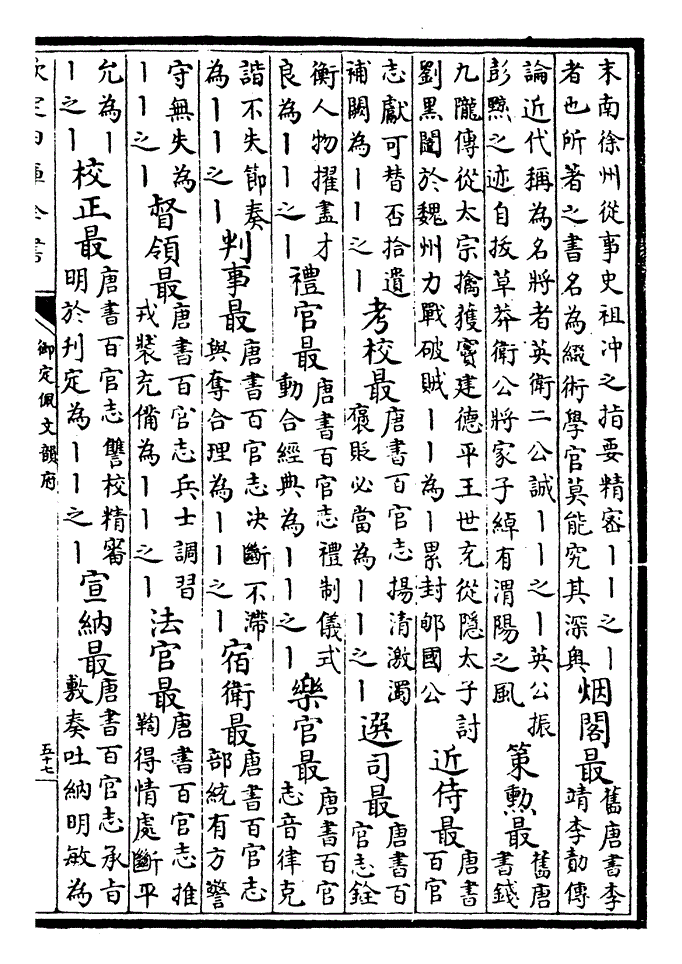 末南徐州從事史祖冲之指要精密丨丨之丨
者也所著之書名為綴術學官莫能究其深奥
烟閣最
舊唐書李
靖李勣傳
論近代稱為名將者英衛二公誠丨丨之丨英公振
彭黥之迹自拔草莽衛公將家子綽有渭陽之風
策勲最
舊唐
書錢
九隴傳從太宗擒獲竇建德平王世充從隱太子討
劉黑闥於魏州力戰破賊丨丨為丨累封郇國公
近侍最
唐書
百官
志獻可替否拾遺
補闕為丨丨之丨
考校最
唐書百官志揚清激濁
褒貶必當為丨丨之丨
選司最
唐書百
官志銓
衡人物擢盡才
良為丨丨之丨
禮官最
唐書百官志禮制儀式
動合經典為丨丨之丨
樂官最
唐書百官
志音律克
諧不失節奏
為丨丨之丨
判事最
唐書百官志决斷不滯
與奪合理為丨丨之丨
宿衛最
唐書百官志
部統有方警
守無失為
丨丨之丨
督領最
唐書百官志兵士調習
戎装充備為丨丨之丨
法官最
唐書百官志推
鞫得情處斷平
允為丨
丨之丨
校正最
唐書百官志讐校精審
明於刋定為丨丨之丨
宣納最
唐書百官志承旨
敷奏吐納明敏為
欽定四庫全書
御定佩文韻府
五十七